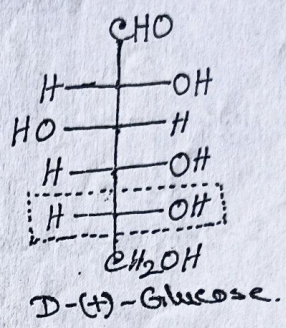 CHO
H OH
HO H
H OH
H OH
CH₂OH
D-(+)-Glucose.